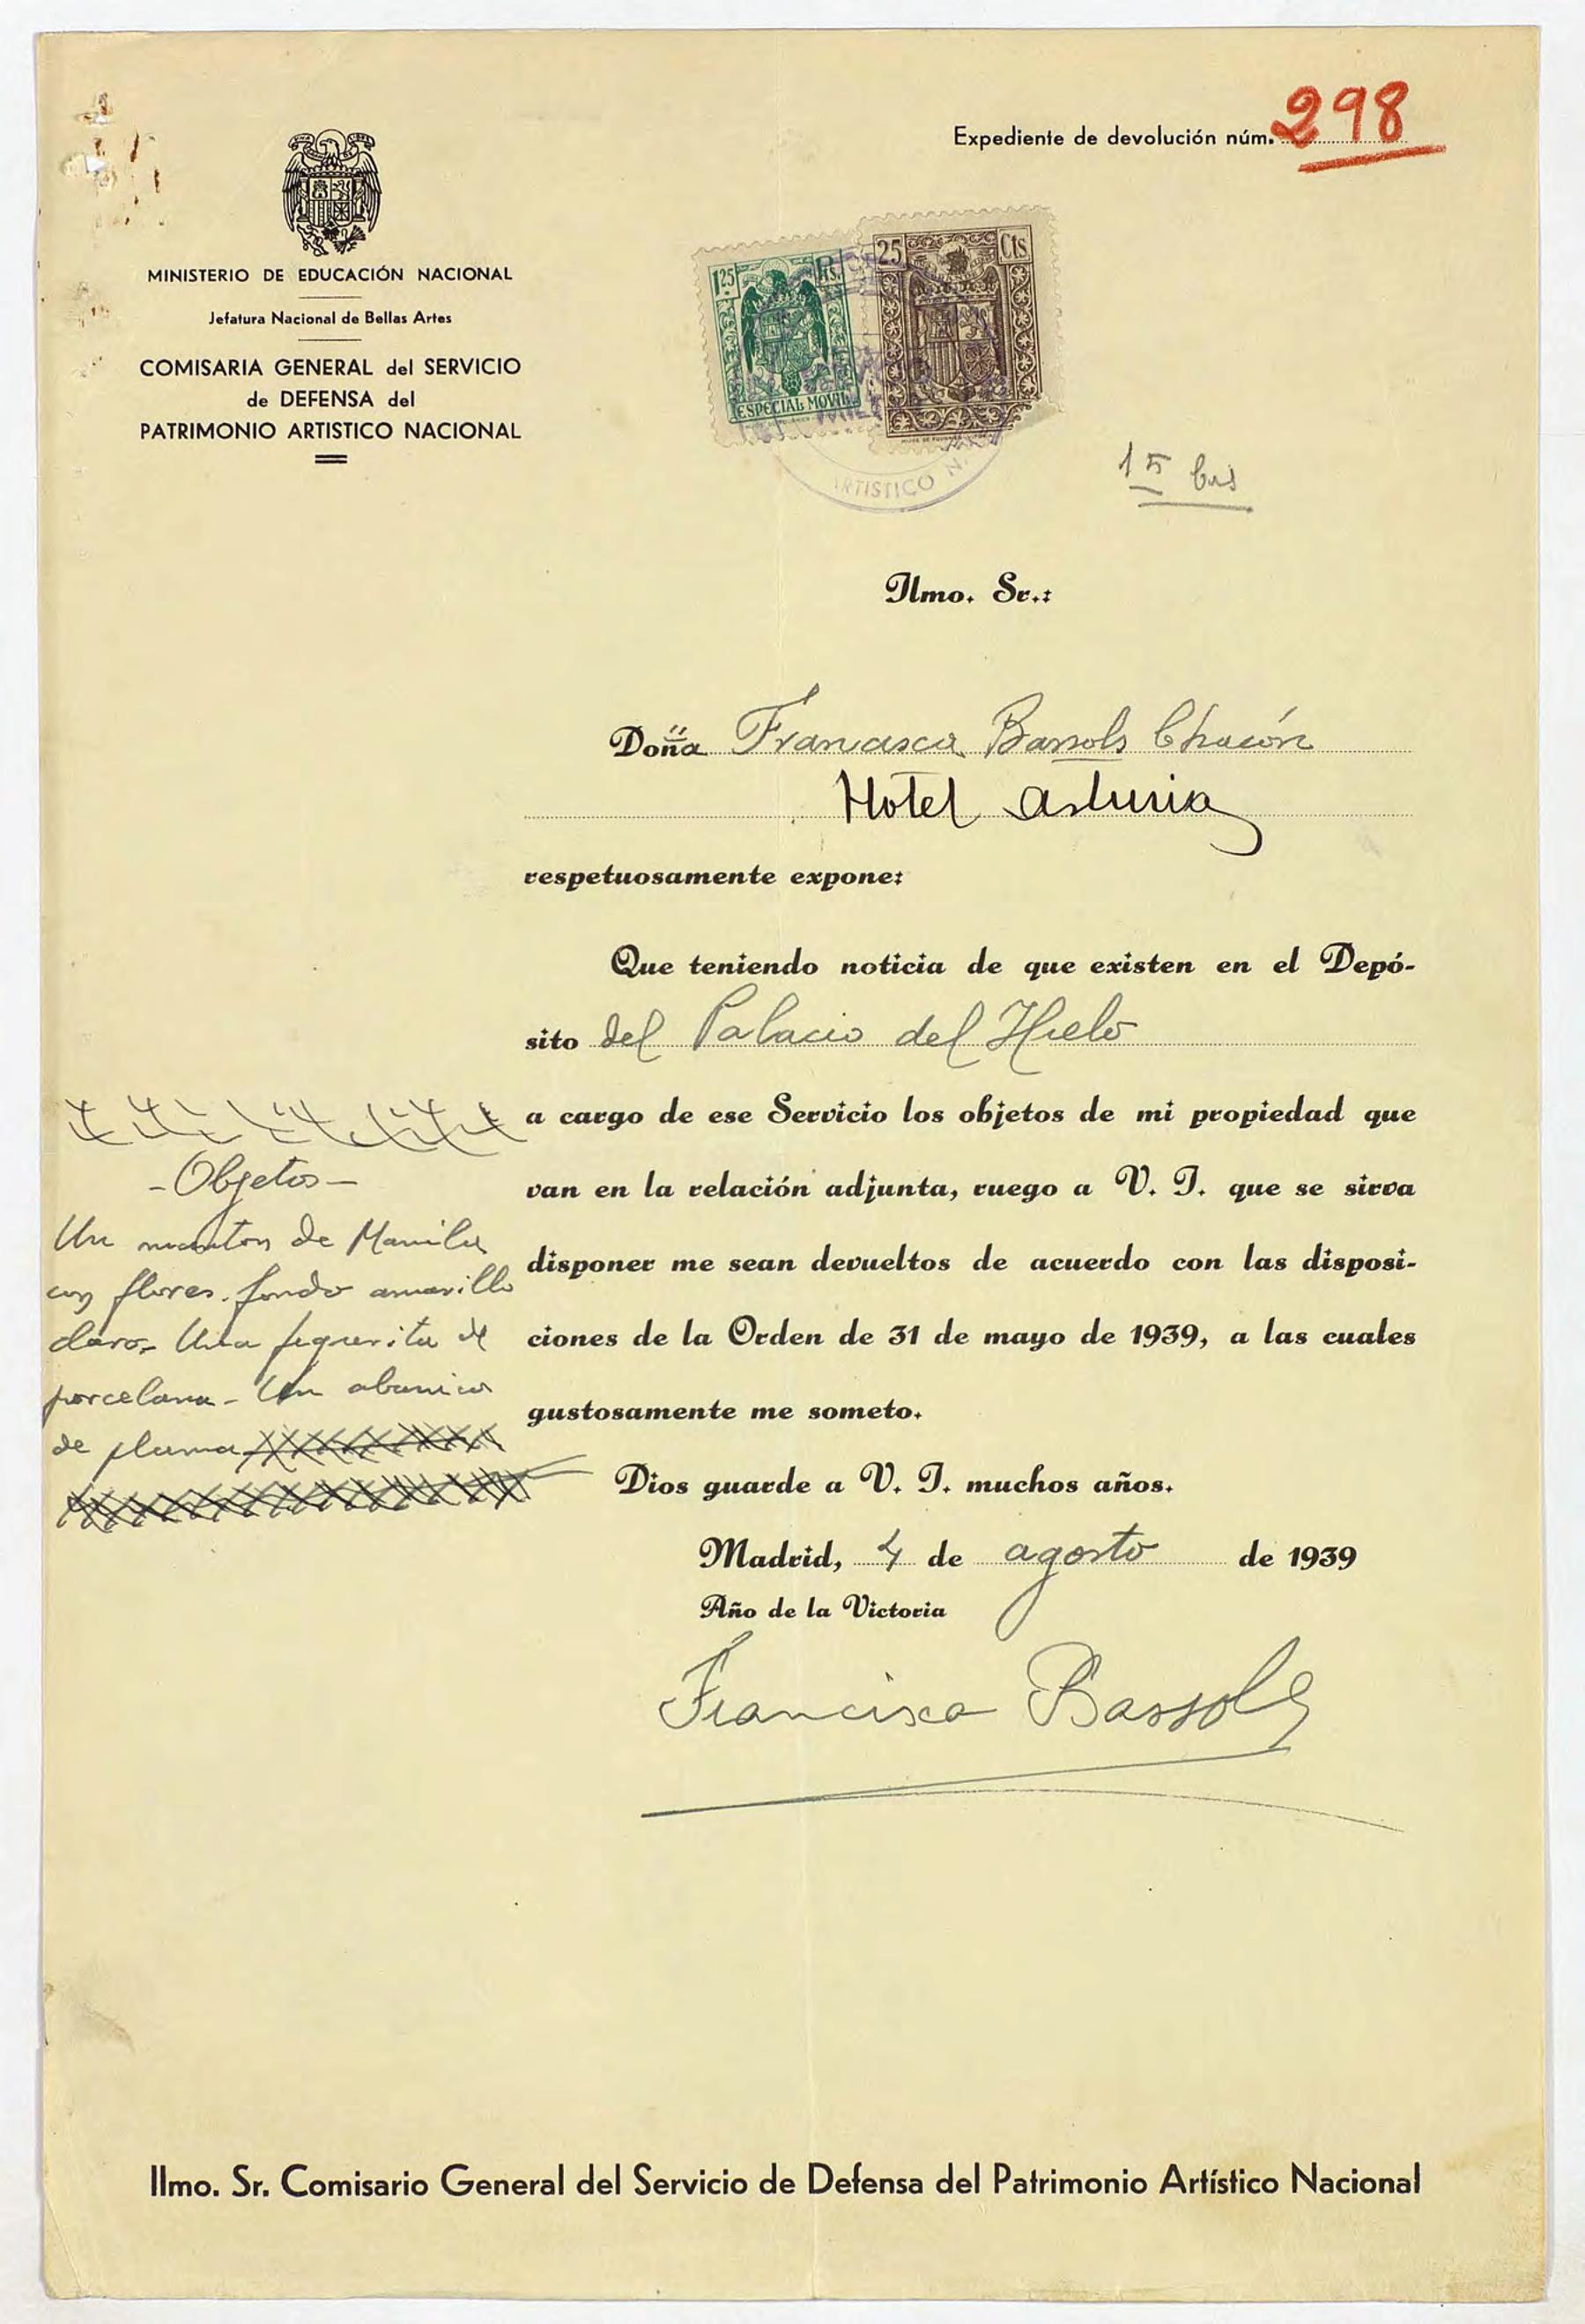 Expediente de devolución núm. 298
MINISTERIO DE EDUCACIÓN NACIONAL
Jefatura Nacional de Bellas Artes
COMISARIA GENERAL del SERVICIO
de DEFENSA del
PATRIMONIO ARTISTICO NACIONAL
1'25 Pts.
ESPECIAL MOVIL
25 Cts
ARTISTICO
15 bis
Ilmo. Sr.:
Doña Francisca Bassols Chacón
Hotel Asturias
respetuosamente expone:
Que teniendo noticia de que existen en el Depó-
sito del Palacio del Hielo
a cargo de ese Servicio los objetos de mi propiedad que
van en la relación adjunta, ruego a V. I. que se sirva
disponer me sean devueltos de acuerdo con las disposi-
ciones de la Orden de 31 de mayo de 1939, a las cuales
gustosamente me someto.
Dios guarde a V. I. muchos años.
Madrid, 4 de agosto de 1939
Año de la Victoria
Francisca Bassols
- Objetos -
Un manton de Manila
con flores. fondo amarillo
claro- Una figurita de
porcelana - Un abanico
de pluma
Ilmo. Sr. Comisario General del Servicio de Defensa del Patrimonio Artístico Nacional